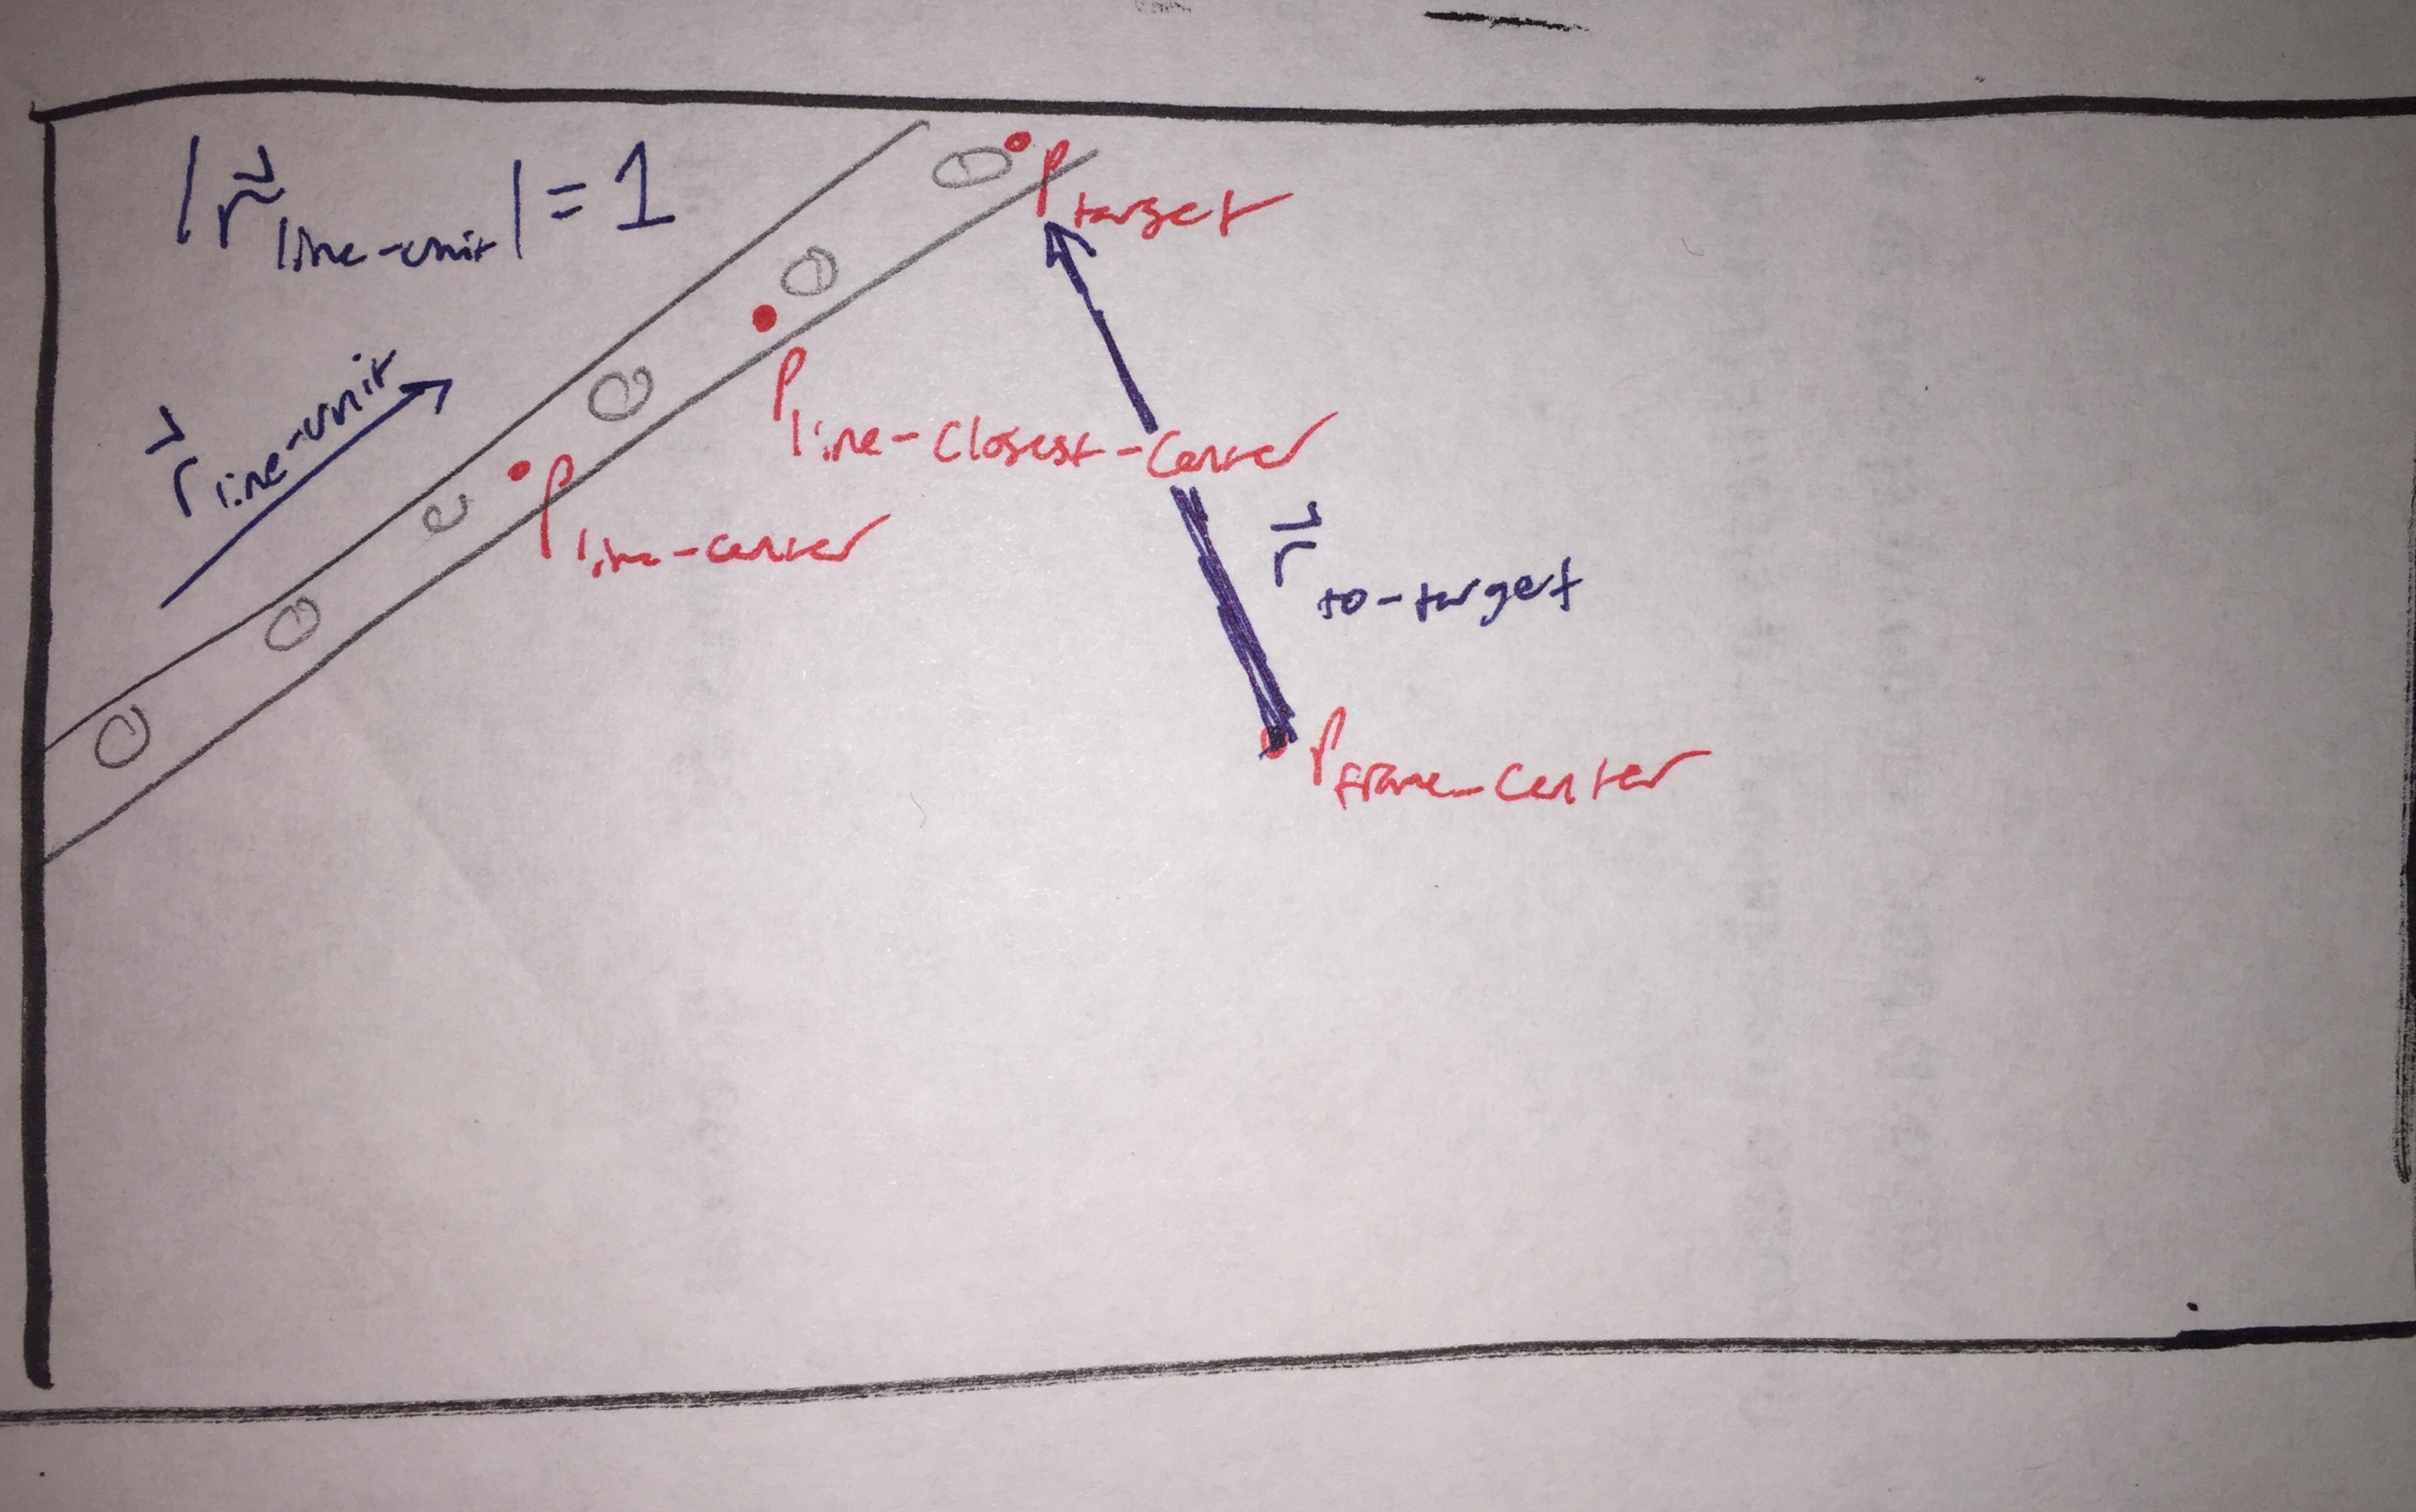 |r⃗ line-unit| = 1
P target
r⃗ line-unit
P line-closest-center
P line-center
r⃗ to-target
P frame-center